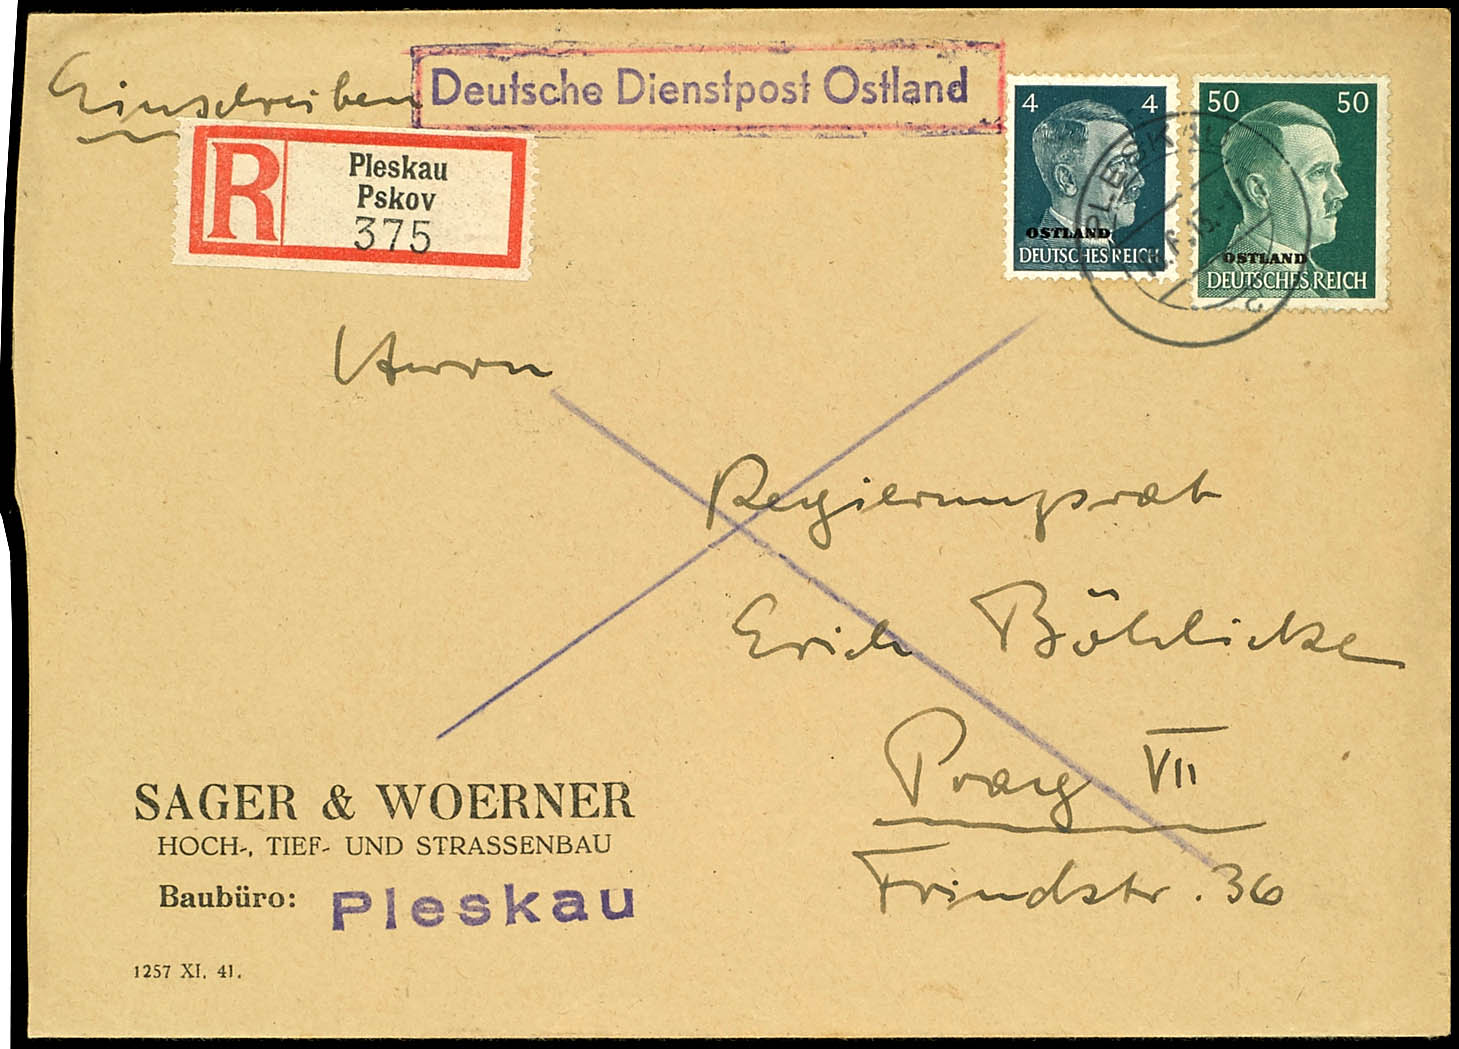 Einschreiben
Deutsche Dienstpost Ostland
R
Pleskau
Pskov
375
4 4
OSTLAND
DEUTSCHES REICH
50 50
OSTLAND
DEUTSCHES REICH
PLESKAU
Herrn
Regierungsrat
Erich Böhlicke
Prag VII
Frindstr. 36
SAGER & WOERNER
HOCH-, TIEF- UND STRASSENBAU
Baubüro: Pleskau
1257 XI. 41.